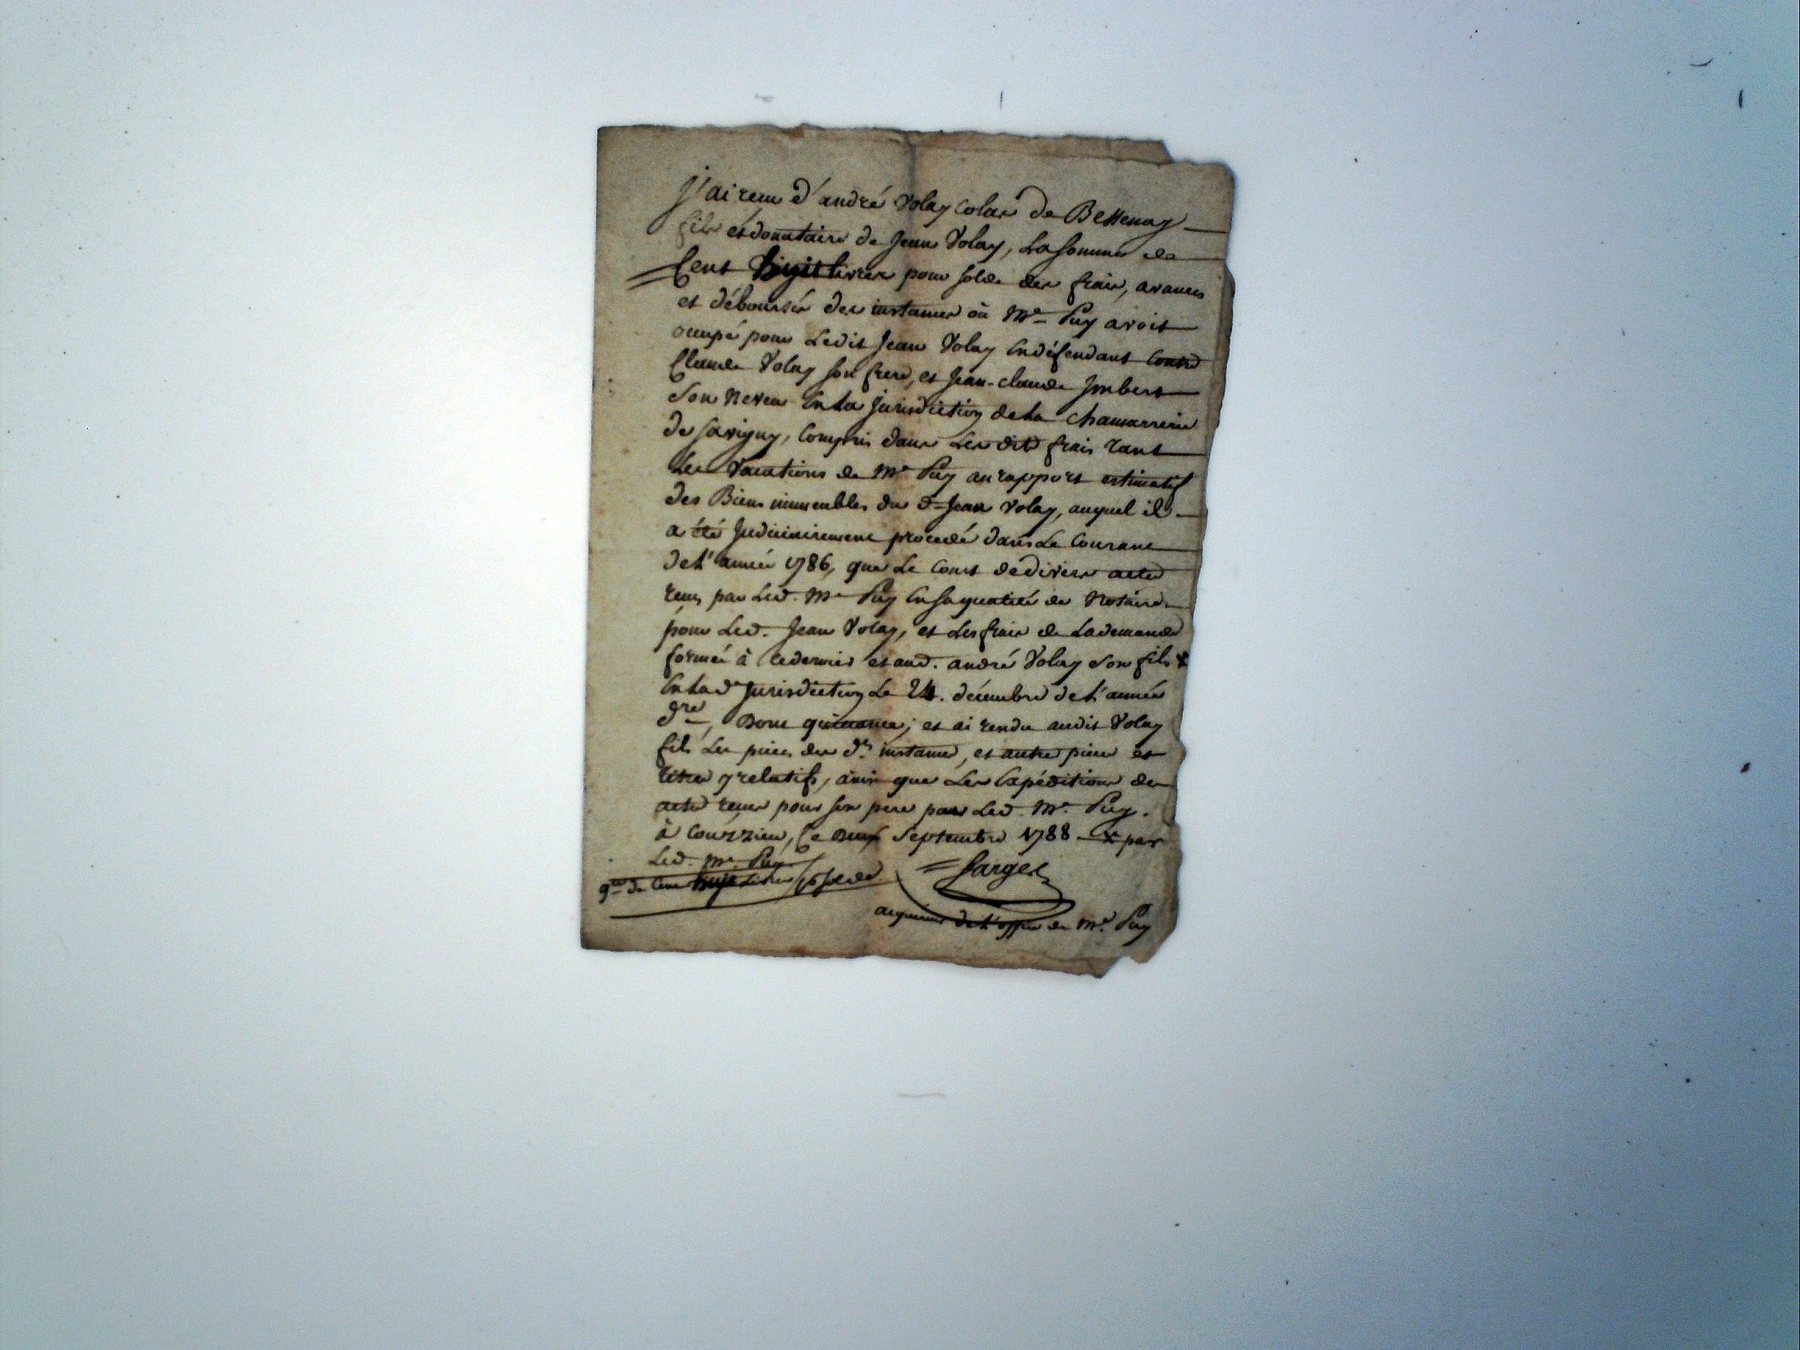 j'ai recu d'andré Volay colas de Bessenay
fils et donataire de Jean Volay, La somme de
Cent huit livres pour solde des frais, avances
et déboursés des instances où Me Puy avoit
occupé pour Ledit Jean Volay En défendant contre
Claude Volay son frere, et Jean-claude Jmbert
son neveu En la Jurisdiction de la chamarrerie
de savigny, compris dans Les dits frais tant
Les vacations de Me Puy au rapport estimatif
des Biens immeubles du d. Jean Volay, auquel il
a été Judiciairement procedé dans Le Courant
de L'année 1786, que Le Cout de divers actes
recus par Led. Me Puy En sa qualité de Notaire
pour Led. Jean Volay, et Les frais de La demande
formée à ce dernier et aud. andré Volay son fils x
En la de Jurisdiction Le 24. décembre de L'année
dre, Dont quittance; et ai rendu audit Volay
fils Les pieces des des instances, et autres pieces et
titres y relatifs, ainsi que Les Expéditions des
actes recus pour son pere par Led. Me Puy.
à Courzieu, Ce deux Septembre 1788 x par
Led. Me Puy
qce de Cent huit Livres
Farges
acquereur de L'office de Me Puy